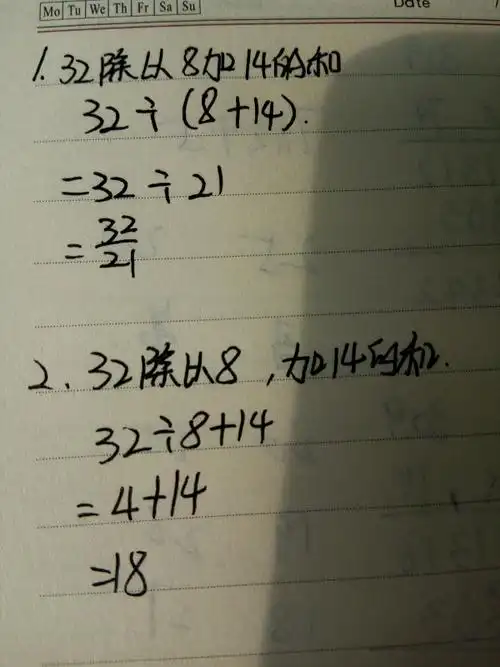 Mo Tu We Th Fr Sa Su Date
1. 32除以8加14的和
32÷(8+14).
=32÷21
=32/21
2. 32除以8,加14的和.
32÷8+14
=4+14
=18